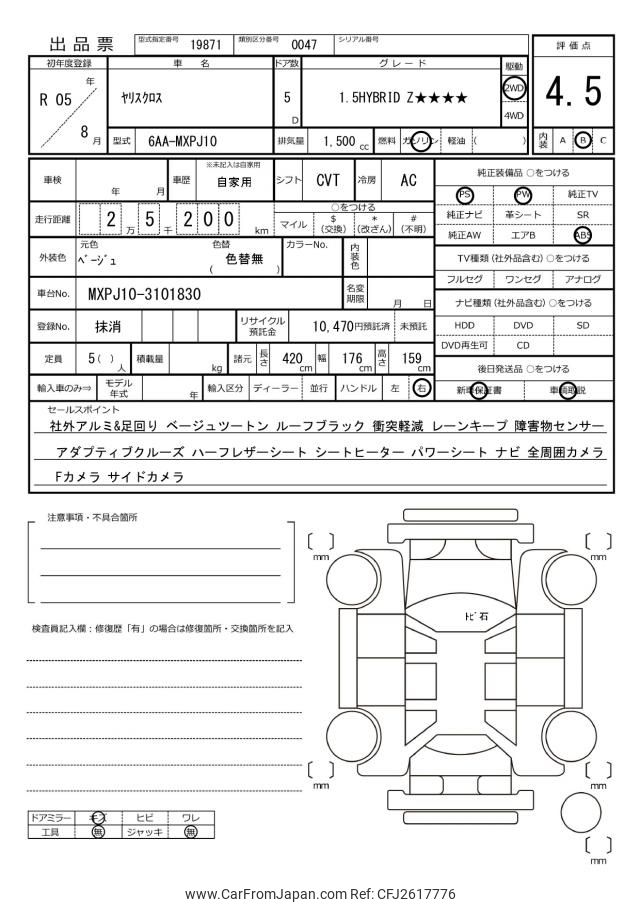 出品票
型式指定番号 19871 類別区分番号 0047 シリアル番号
評価点
4.5
内装 A B C
初年度登録 車名 ドア数 グレード 駆動
R 05 年 8 月 ヤリスクロス 5 D 1.5HYBRID Z★★★★ 2WD
4WD
型式 6AA-MXPJ10 排気量 1,500 cc 燃料 ガソリン 軽油 ( )
車検 年 月 車歴 ※未記入は自家用 自家用 シフト CVT 冷房 AC
走行距離 2 万 5 千 2 0 0 km
○をつける
マイル $(交換) *(改ざん) #(不明)
外装色 元色 ベージュ 色替 ( 色替無 ) カラーNo. 内装色
車台No. MXPJ10-3101830 名変期限 月 日
登録No. 抹消 リサイクル預託金 10,470円預託済 未預託
定員 5( ) 人 積載量 kg 諸元 長さ 420 cm 幅 176 cm 高さ 159 cm
輸入車のみ⇒ モデル年式 年 輸入区分 ディーラー 並行 ハンドル 左 右
純正装備品 ○をつける
PS PW 純正TV
純正ナビ 革シート SR
純正AW エアB ABS
TV種類(社外品含む) ○をつける
フルセグ ワンセグ アナログ
ナビ種類(社外品含む) ○をつける
HDD DVD SD
DVD再生可 CD
後日発送品 ○をつける
新車保証書 車輌取説
セールスポイント
社外アルミ&足回り ベージュツートン ルーフブラック 衝突軽減 レーンキープ 障害物センサー
アダプティブクルーズ ハーフレザーシート シートヒーター パワーシート ナビ 全周囲カメラ
Fカメラ サイドカメラ
注意事項・不具合箇所
検査員記入欄:修復歴「有」の場合は修復箇所・交換箇所を記入
mm
mm
トビ石
mm
mm
mm
ドアミラー キズ ヒビ ワレ
工具 無 ジャッキ 無
www.CarFromJapan.com Ref: CFJ2617776